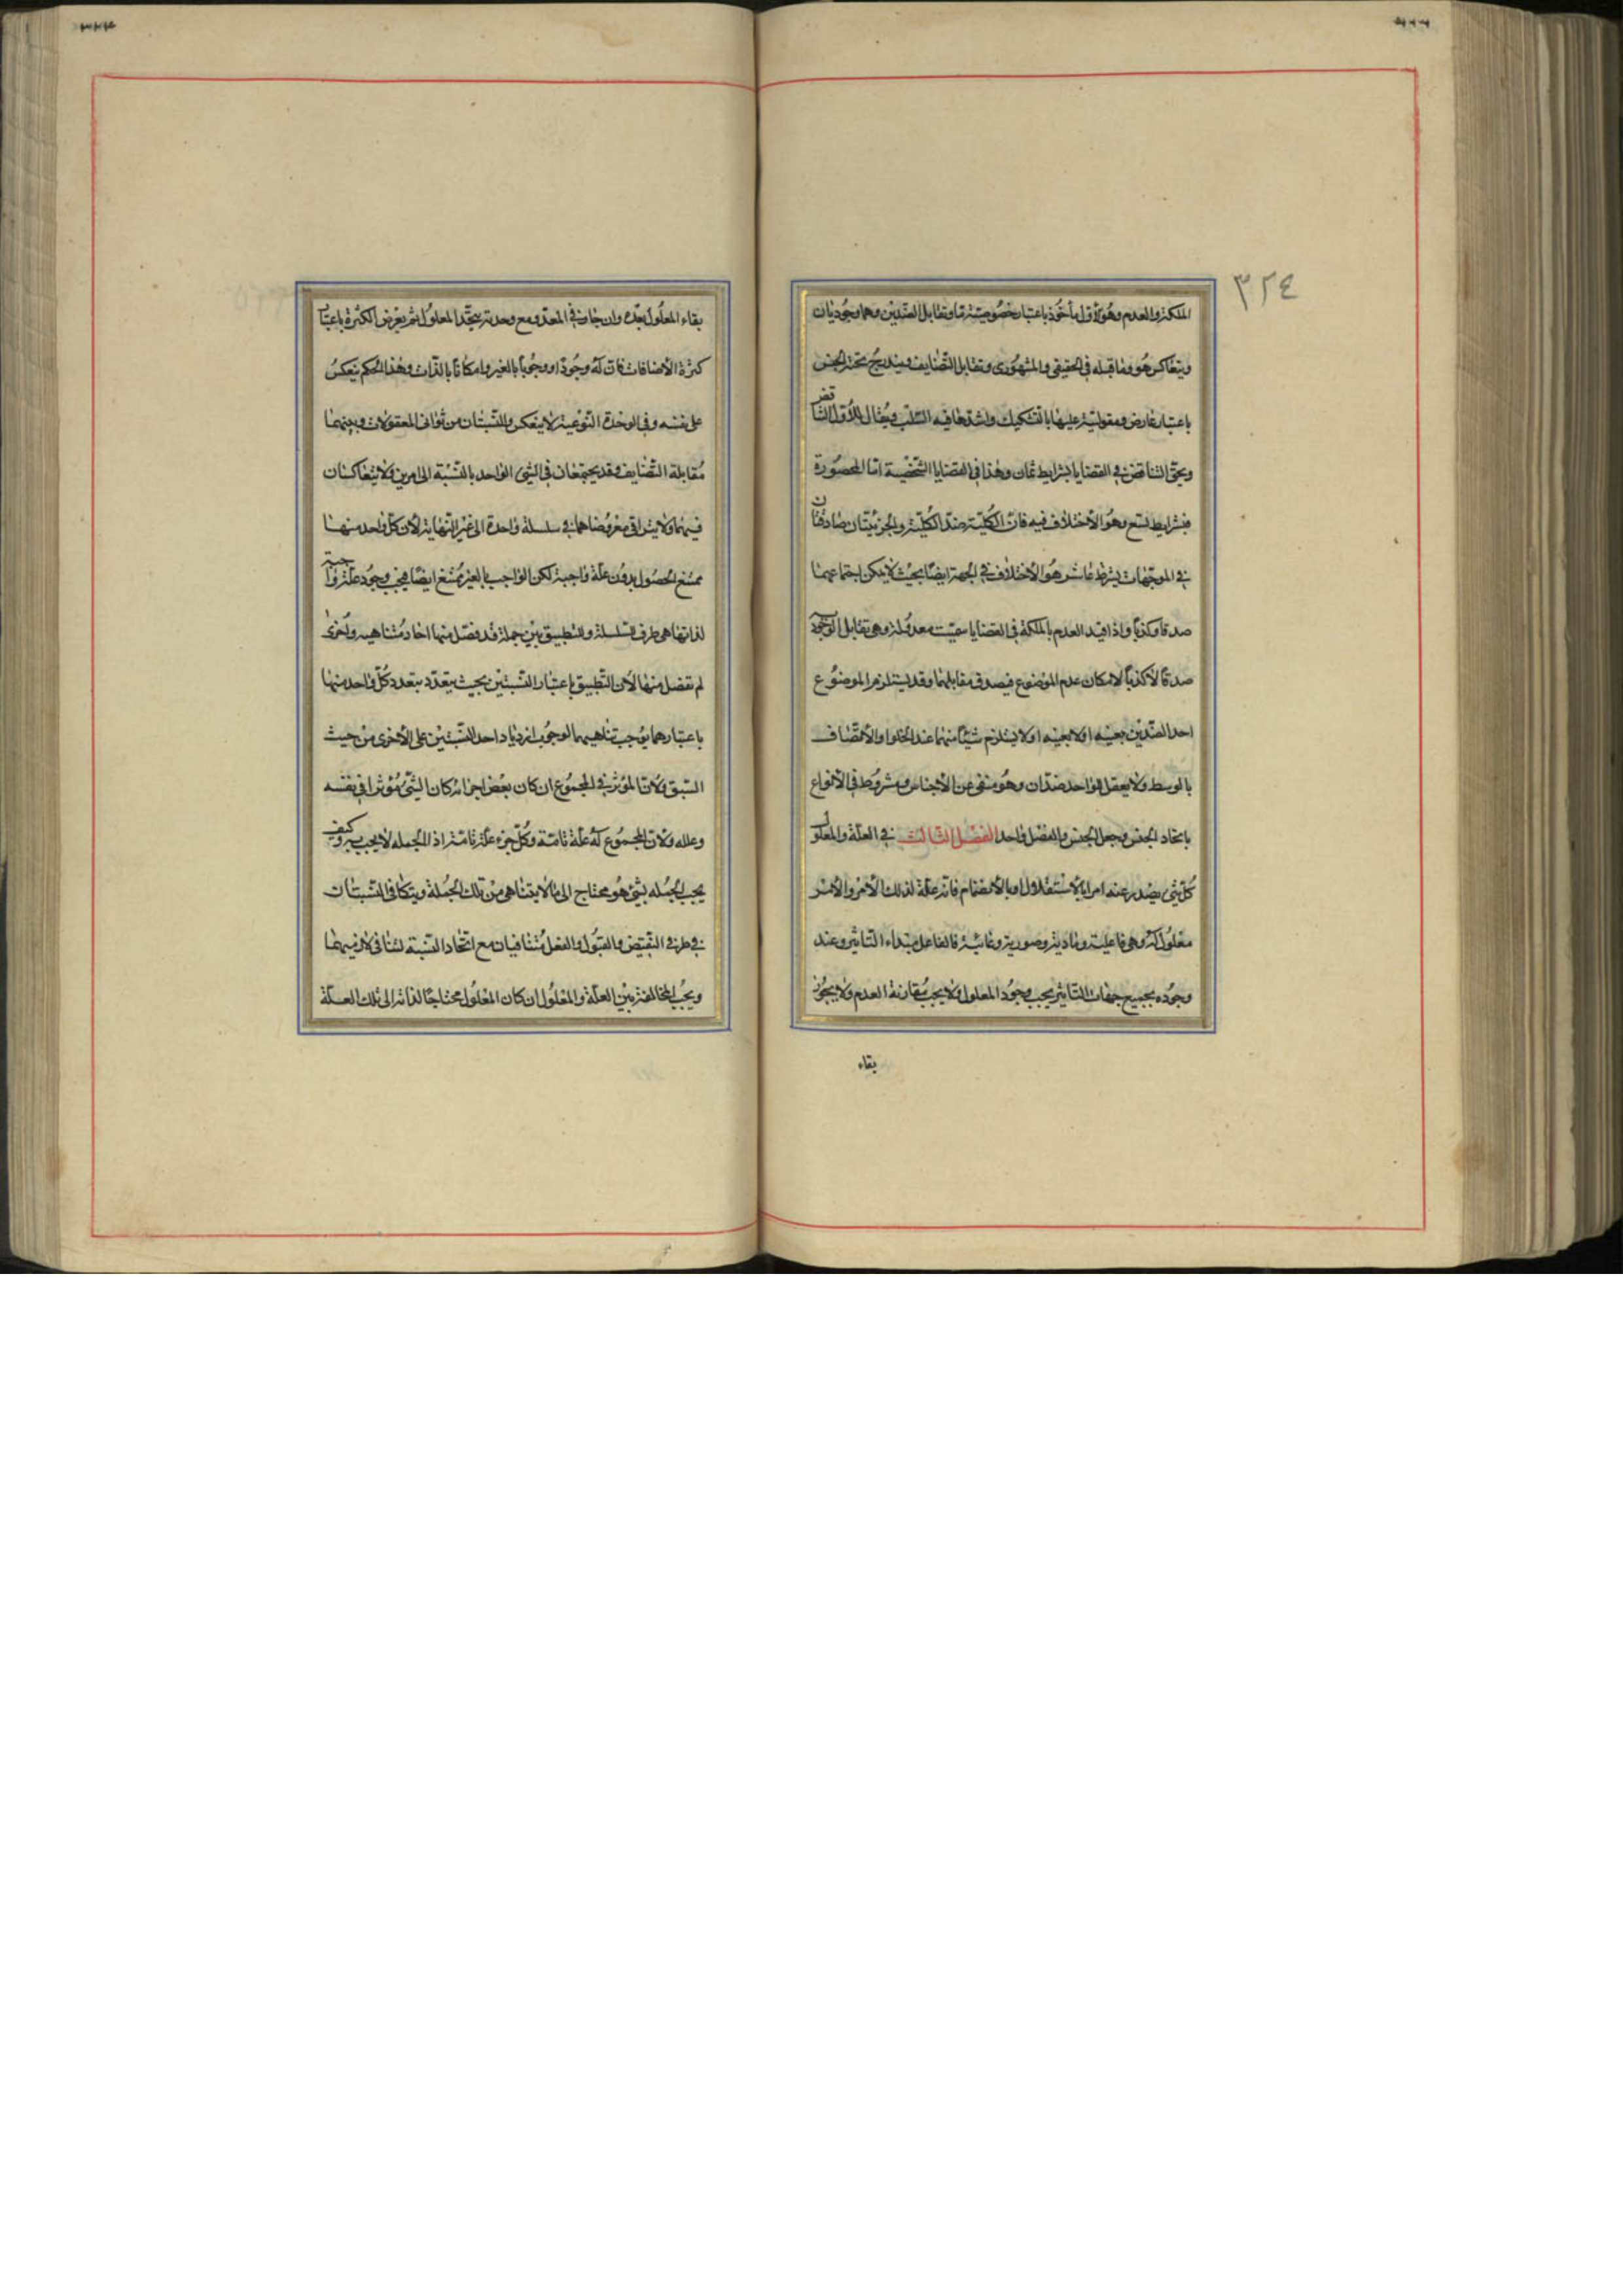 ٣٢٤
الملكة والعدم وهو الأول مأخوذ باعتبار خصوصية ما وتقابل الضدين وهما وجوديان
ويتعاكس هو وما قبله في الحقيقي والمشهوري وتقابل التضايف ويندرج تحته الجنس
باعتبار عارض ومقوليته عليها بالتشكيك واشدها فيه السلب ويقال للأول التناقض
ويحقق التناقض في القضايا بشرايط ثمان وهذا في القضايا الشخصية اما المحصورة
فبشرايط تسع وهو الأختلاف فيه فان الكلية ضد الكلية والجزئيتان صادقتان
في الموجهات بشرط عاشر هو الأختلاف في الجهة ايضا بحيث لا يمكن اجتماعهما
صدقا وكذبا واذا قيد العدم بالملكة في القضايا سميت معدولة وهي تقابل الوجودية
صدقا لا كذبا لامكان عدم الموضوع فيصدق مقابلهما وقد يستلزم الموضوع
احد الضدين بعينه او لا بعينه او لا يستلزم شيئا منهما عند الخلوا والأتصاف
بالوسط ولا يعقل للواحد ضدان وهو منفى عن الأجناس ومشروط في الأنواع
باتحاد الجنس وجعل الجنس والفصل واحد الفصل الثالث في العلة والمعلول
كل شئ يصدر عنه امر اما بالأستقلال او بالأنضمام فانه علة لذلك الأمر والأمر
معلول له وهي فاعلية ومادية وصورية وغائية فالفاعل مبداء التاثير وعند
وجوده بجميع جهات التاثير يجب وجود المعلول ولا يجب مقارنة العدم ولا يجوز
بقاء
بقاء المعلول بعده وان جاز في المعد ومع وحدته يتحد المعلول ثم يعرض الكثرة باعتبار
كثرة الأضافات فان له وجودا ووجوبا بالغير وامكانا بالذات وهذا الحكم ينعكس
على نفسه وفي الوحدة النوعية لا ينعكس والنسبتان من ثواني المعقولات وبينهما
مقابلة التضايف وقد يجتمعان في الشئ الواحد بالنسبة الى امرين ولا يتعاكسان
فيهما ولا يتراقى معروضاهما في سلسلة واحدة الى غير النهاية لأن كل واحد منها
ممتنع الحصول بدون علة واجبة لكن الواجب بالغير ممتنع ايضا فيجب وجود علة واجبة
لذاتها هي طرف السلسلة وللتطبيق بين جملة قد فصل منها احاد متناهيه واخرى
لم تفصل منها لأن التطبيق باعتبار النسبتين بحيث يتعدد بتعدد كل واحد منها
باعتبارهما يوجب تناهيهما لوجوب ازدياد احد النسبتين على الأخرى من حيث
السبق ولأن المؤثر في المجموع ان كان بعض اجزائه كان الشئ مؤثرا في نفسه
وعلله ولأن المجموع له علة تامة وكل جزء علة تامة اذ الجمله لا يجب به وكيف
يجب الجمله بشئ هو محتاج الى ما لا يتناهى من تلك الجملة ويتكافى النسبتان
في طرفي النقيض والقبول والفعل متنافيان مع اتحاد النسبة لتنافى لازميهما
ويجب المخالفة بين العلة والمعلول ان كان المعلول محتاجا لذاته الى تلك العلة